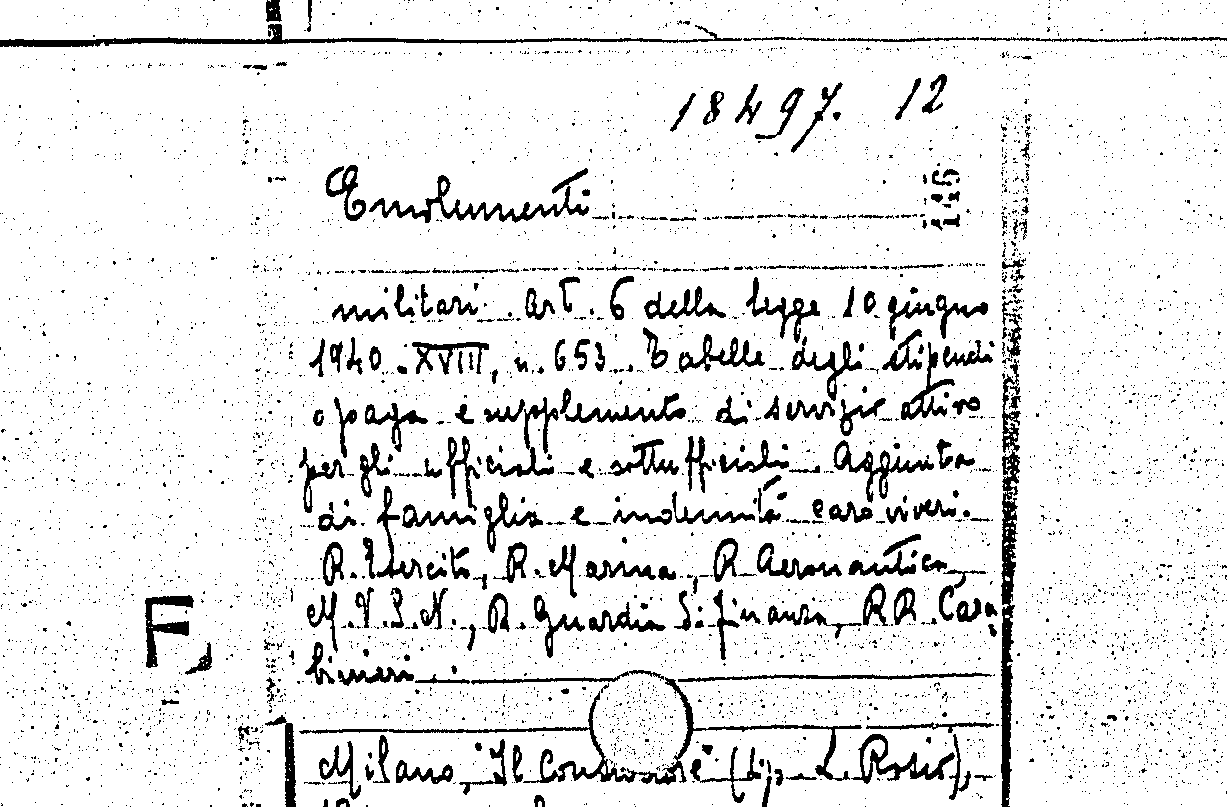 18497. 12
Emolumenti
146
militari. Art. 6 della legge 10 giugno
1940-XVIII, n. 653. Tabelle degli stipendi
o paga e supplemento di servizio attivo
per gli ufficiali e sottufficiali. Aggiunta
di famiglia e indennità caro viveri.
R. Esercito, R. Marina, R. Aeronautica,
M.V.S.N., R. Guardia di finanza, RR. Cara
F,
binieri.
Milano, "Il (Tip. L. Rosio),